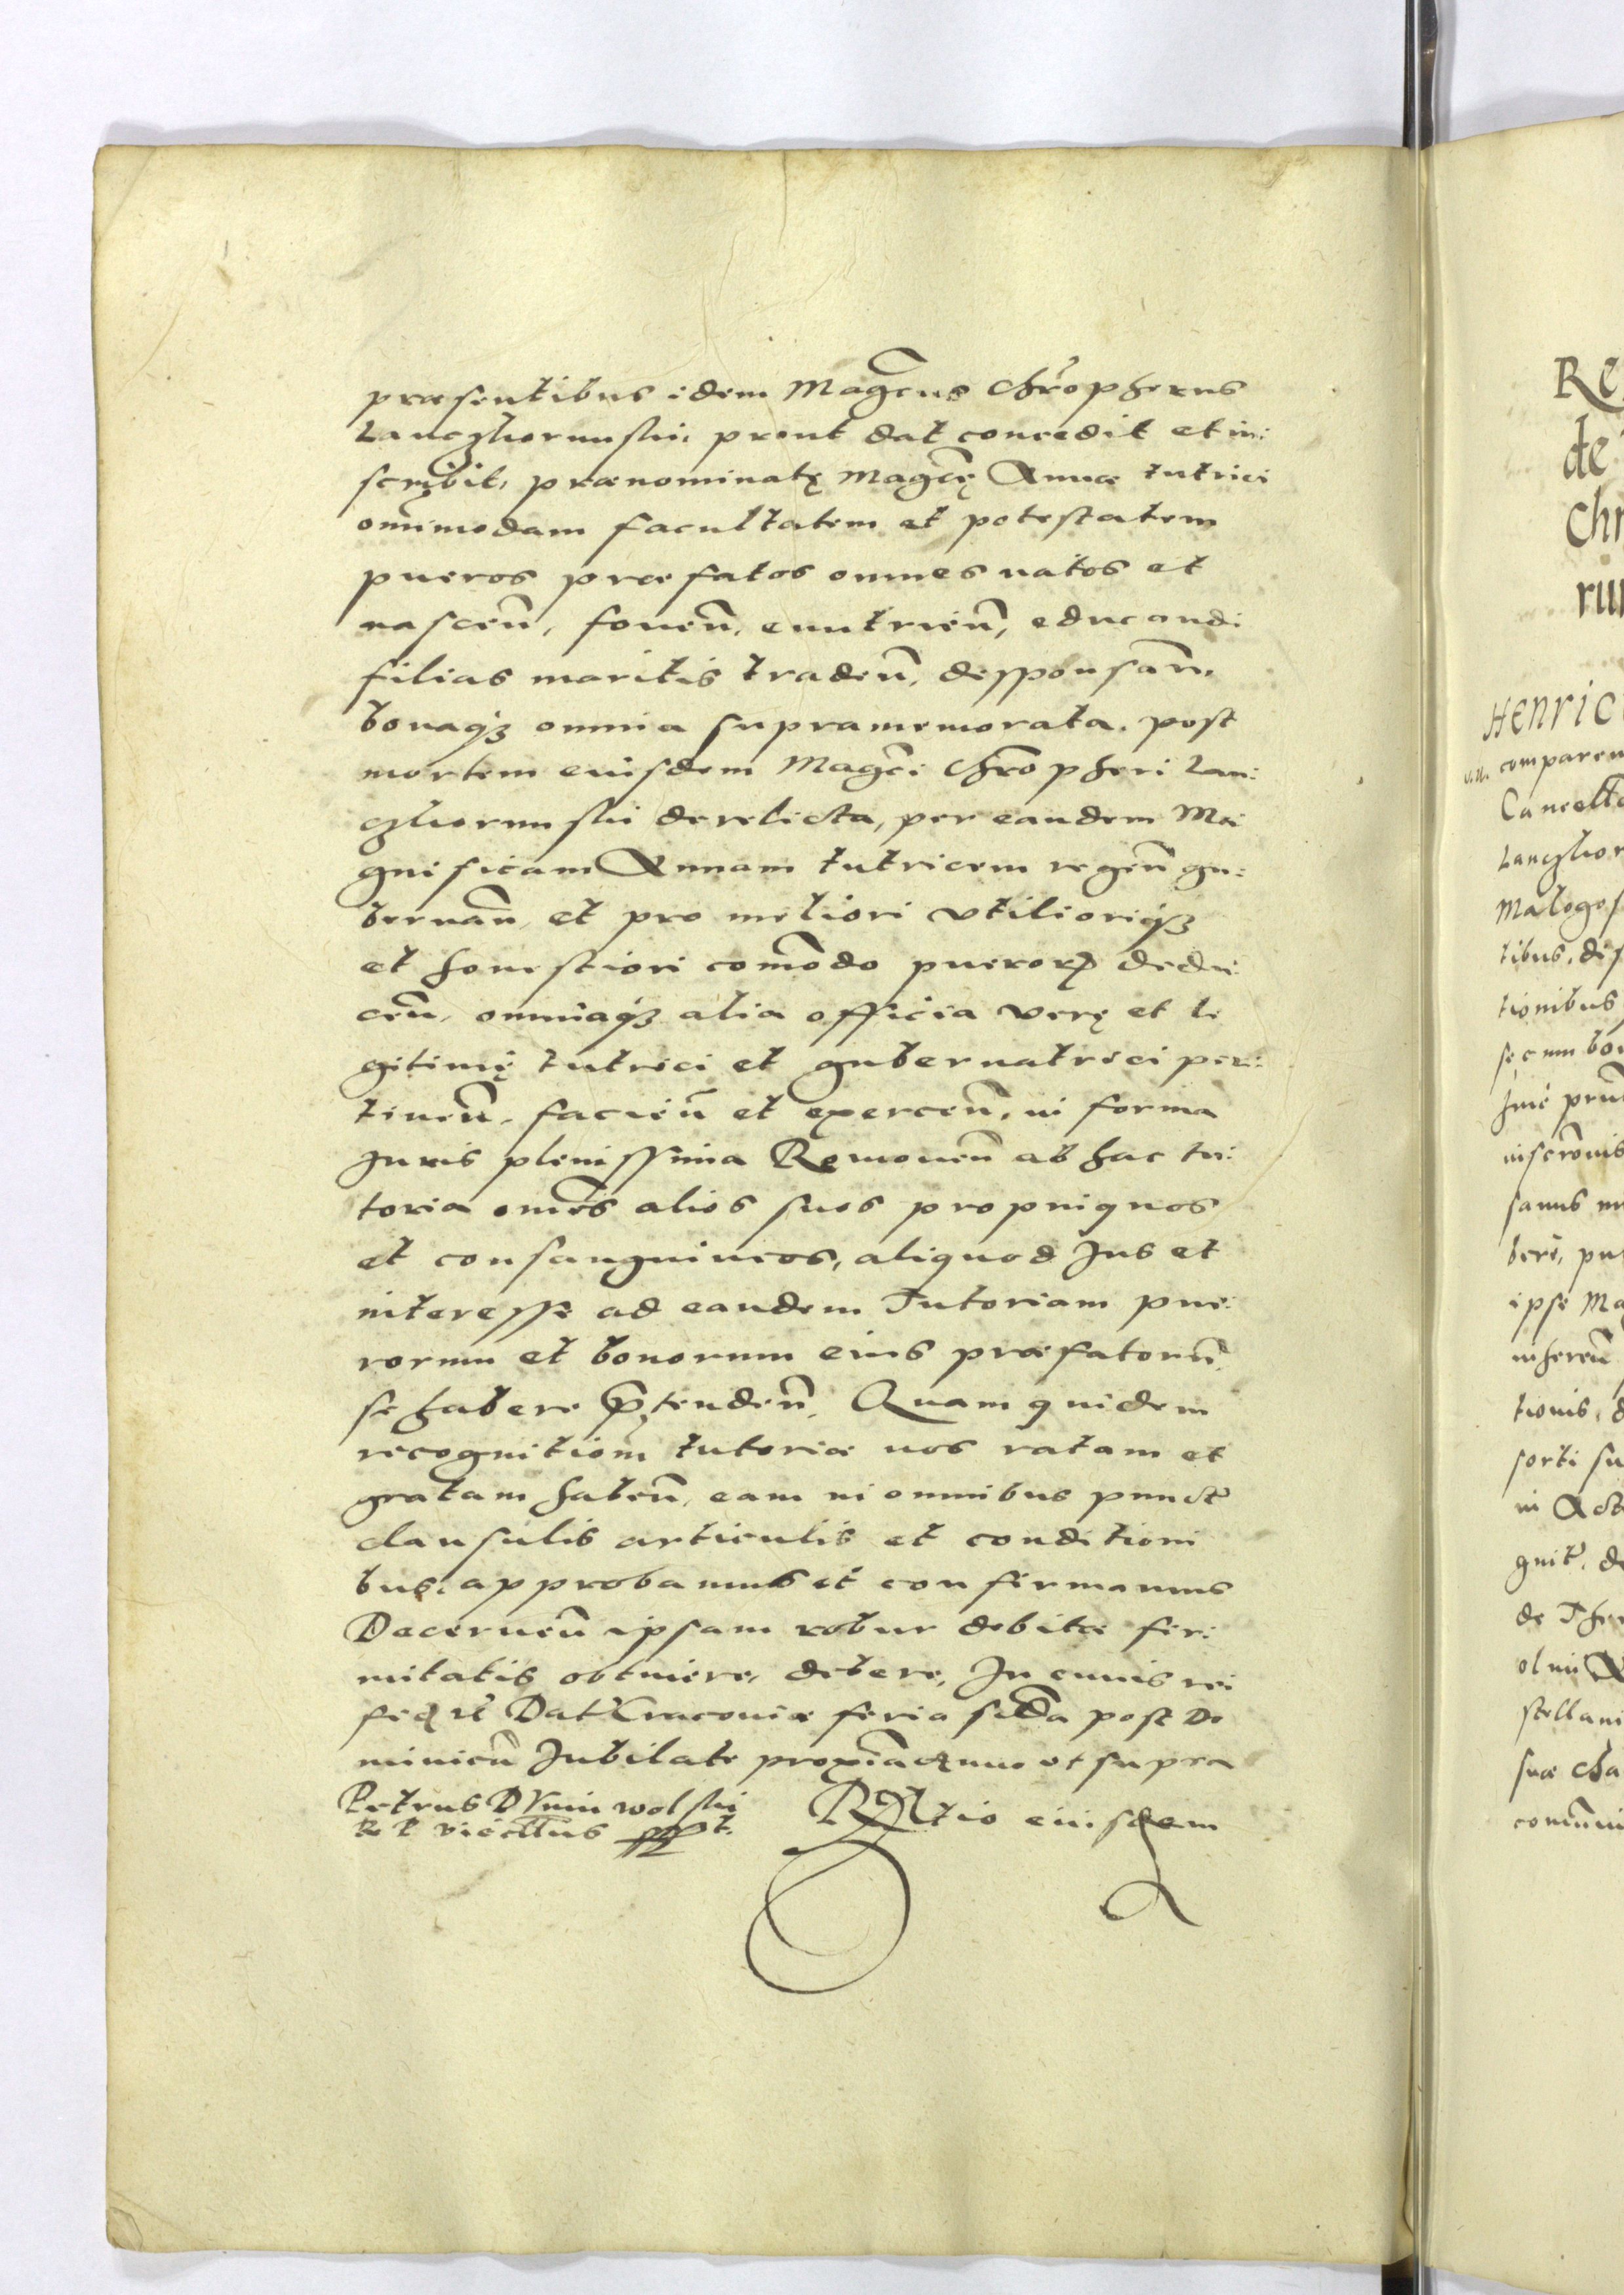 præsentibus idem Mag͠cus Chr̃opherus
Lanczkorunski, prout dat concedit et in:
scribit, prænominatę Mag͠cę Annæ tutrici
om̃imodam facultatem et potestatem
pueros præfatos omnes natos et
nasceñ, foueñ, enutrieñ, educandi
filias maritis tradeñ, desponsañ,
bonaqꝫ omnia supramemorata, post
mortem eiusdem Mag͠ci Chr̃opheri Lan:
czkorunski derelicta, per eandem Ma
gnificam Annam tutricem regeñ gu:
bernañ, et pro meliori vtilioriqꝫ
et honestiori com̃odo pueroꝝ dedu:
ceñ, omniaqꝫ alia officia verę et le
gitimę tutrici et gubernatrici per:
tineñ, facieñ et exerceñ, in forma
Juris plenissima Remoueñ ab hac tu:
toria om̃es alios suos propinquos
et consanguineos, aliquod Jus et
interesse ad eandem Tutoriam pue:
rorum et bonorum eius præfatorũ,
se habere p̃tendeñ, Quam quidem
recognitiom̃ tutoriæ nos ratam et
gratam habeñ, eam in omnibus punct̃
clausulis articulis et conditioni
bus, approbamus et confirmamus
Decerneñ ipsam robur debitæ fir:
mitatis obtinere, debere, In cuius rei
Dat̃ Cracoviæ feria sc̃da post Do
minicã Jubilate prox̃ia Anno vt supra
Petrus Dunin wolski
R P vicecll̃us
Rltio eiusdem
Re
de
Chr
rui
Henric
comparen
Cancell
Lanczkor
Malogos
tibus, dis
tionibus
sanus
ipse Ma
inhereñ
tionis, d
sorti su
in Act
gnit̃, de
stellani
suæ cha